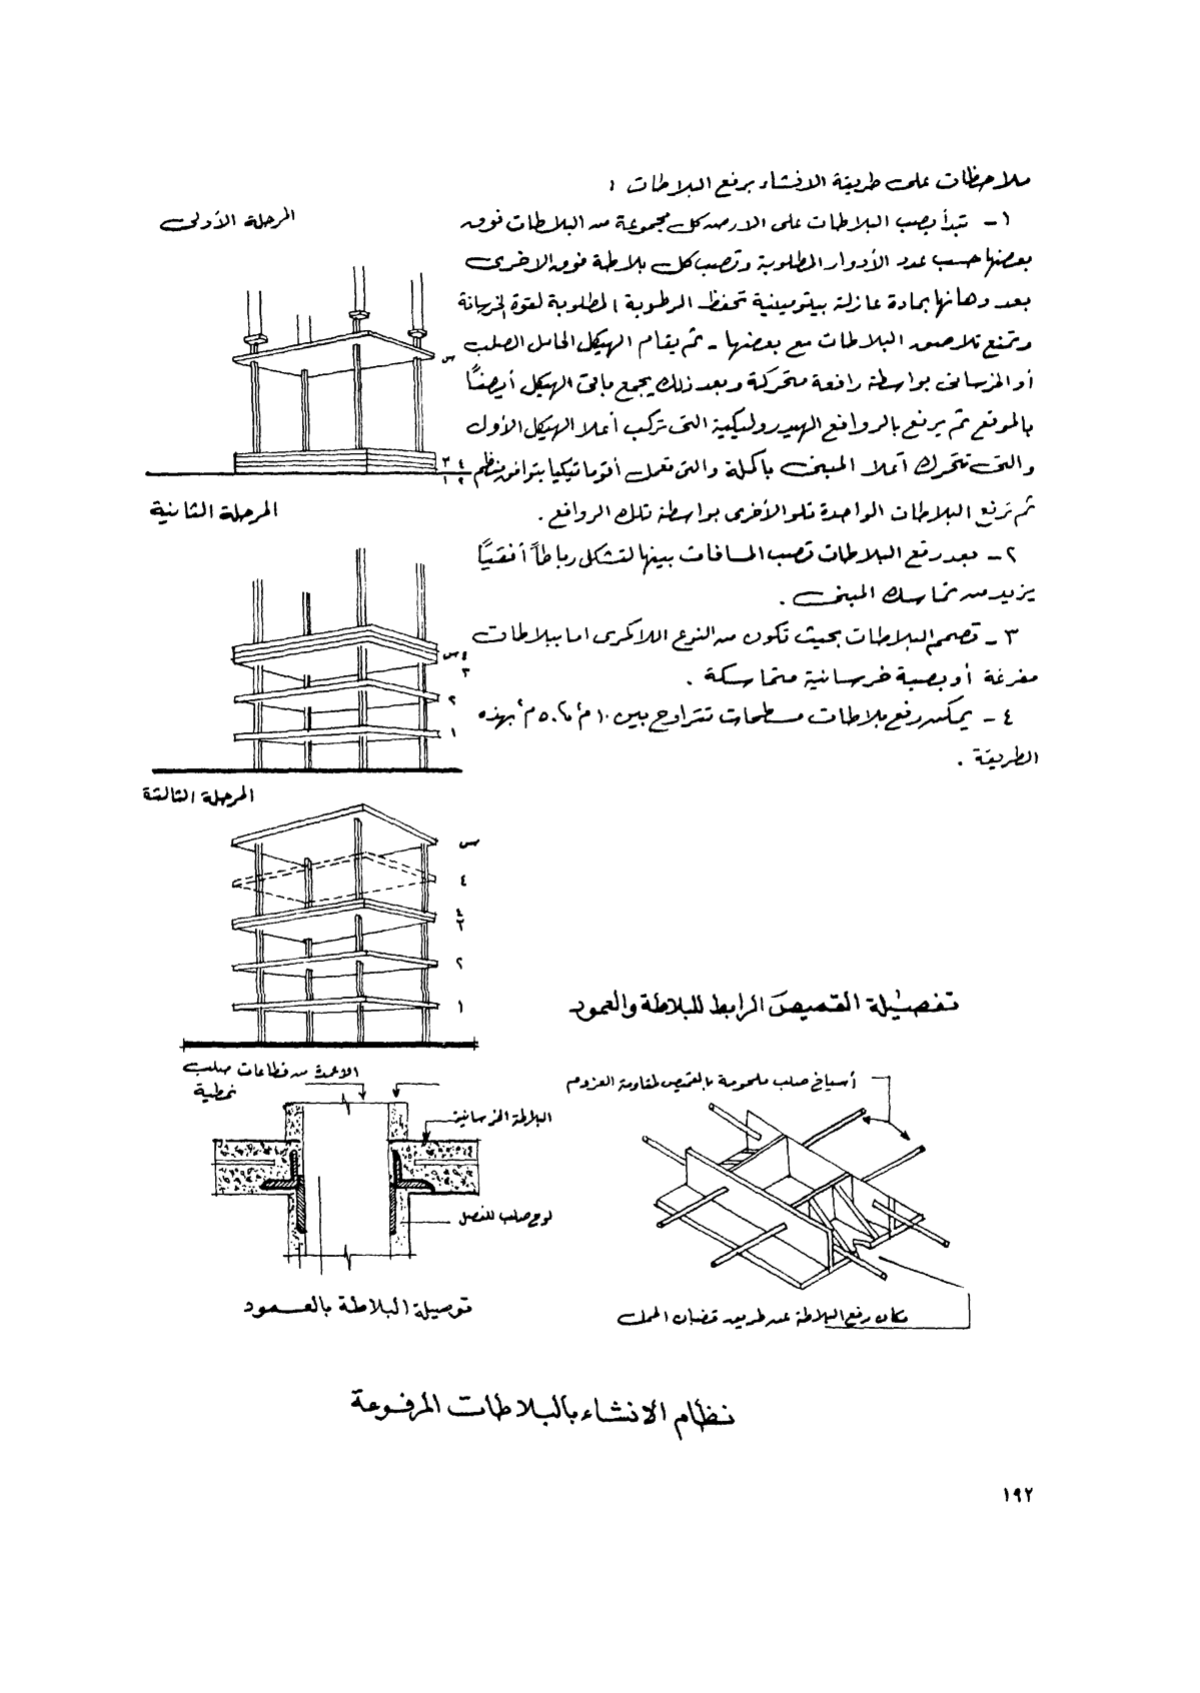 ملاحظات على طريقة الانشاء برفع البلاطات :
١ - تبدأ بصب البلاطات على الارض كل مجموعة من البلاطات فوق
بعضها حسب عدد الأدوار المطلوبة وتصب كل بلاطة فوق الاخرى
بعد دهانها بمادة عازلة بيتومينية تحفظ الرطوبة المطلوبة لقوة الخرسانة
وتمنع تلاصق البلاطات مع بعضها - ثم يقام الهيكل الحامل الصلب
أو الخرسانى بواسطة رافعة متحركة وبعد ذلك يجمع باقى الهيكل أيضاً
بالموقع ثم يرفع بالروافع الهيدروليكية التى تركب أعلا الهيكل الأول
والتى تتحرك أعلا المبنى بأكملة والتى تعمل أتوماتيكيا بتوافق منظم
ثم ترفع البلاطات الواحدة تلو الأخرى بواسطة تلك الروافع .
٢ - بعد رفع البلاطات تصب المسافات بينها لتشكل رباطاً أفقيًا
يزيد من تماسك المبنى .
٣ - تصمم البلاطات بحيث تكون من النوع اللاكمرى اما ببلاطات
مفرغة أو بصبة خرسانية متماسكة .
٤ - يمكن رفع بلاطات مسطحات تتراوح بين ١٠ م٢ ، ٥٠ م٢ بهذه
الطريقة .
المرحلة الأولى
س
٣ ٤
١ ٢
المرحلة الثانية
٤ س
٣
٢
١
المرحلة الثالثة
س
٤
٤
٣
٢
١
تفصيلة القميص الرابط للبلاطة والعمود
أسياخ صلب ملحومة بالقميص لمقاومة العزوم
مكان رفع البلاطة عن طريق قضبان الحمل
الاعمدة من قطاعات صلب
نمطية
البلاطة الخرسانية
لوح صلب للفصل
توصيلة البلاطة بالعمود
نظام الانشاء بالبلاطات المرفوعة
١٩٢